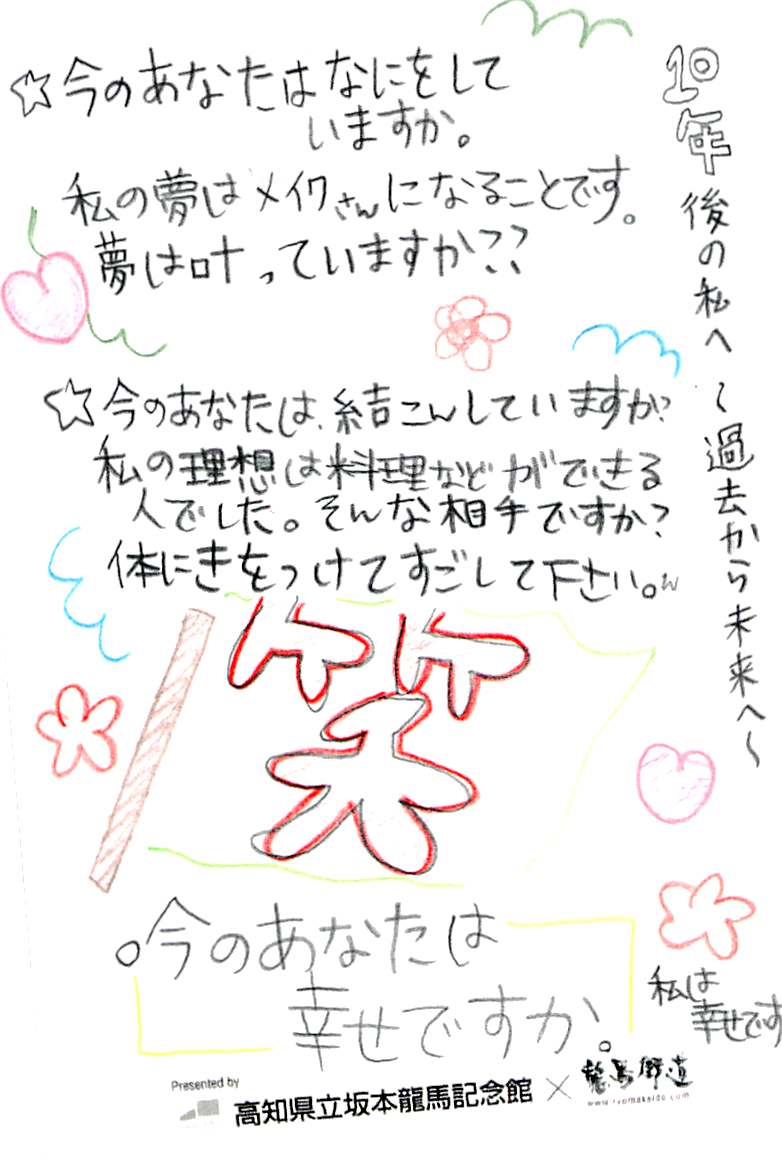 10年後の私へ 〜過去から未来へ〜
☆今のあなたはなにをして
いますか。
私の夢はメイクさんになることです。
夢は叶っていますか??
☆今のあなたは、結こんしていますか?
私の理想は料理などができる
人でした。そんな相手ですか?
体にきをつけてすごして下さい。
笑
今のあなたは
幸せですか。
私は
幸せです
Presented by
高知県立坂本龍馬記念館×龍馬街道
www.ryomakaido.com